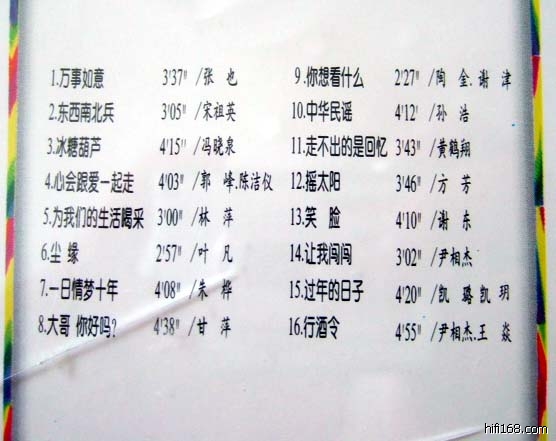 1.万事如意 3'37" /张 也
2.东西南北兵 3'05" /宋祖英
3.冰糖葫芦 4'15" /冯晓泉
4.心会跟爱一起走 4'03" /郭 峰.陈洁仪
5.为我们的生活喝采 3'00" /林 萍
6.尘 缘 2'57" /叶 凡
7.一日情梦十年 4'08" /朱 桦
8.大哥 你好吗? 4'38" /甘 萍
9.你想看什么 2'27" /陶 金.谢 津
10.中华民谣 4'12' /孙 浩
11.走不出的是回忆 3'43" /黄鹤翔
12.摇太阳 3'46" /方 芳
13.笑 脸 4'10" /谢 东
14.让我闯闯 3'02" /尹相杰
15.过年的日子 4'20" /凯 璐.凯 玥
16.行酒令 4'55" /尹相杰.王 焱
hifi168.com